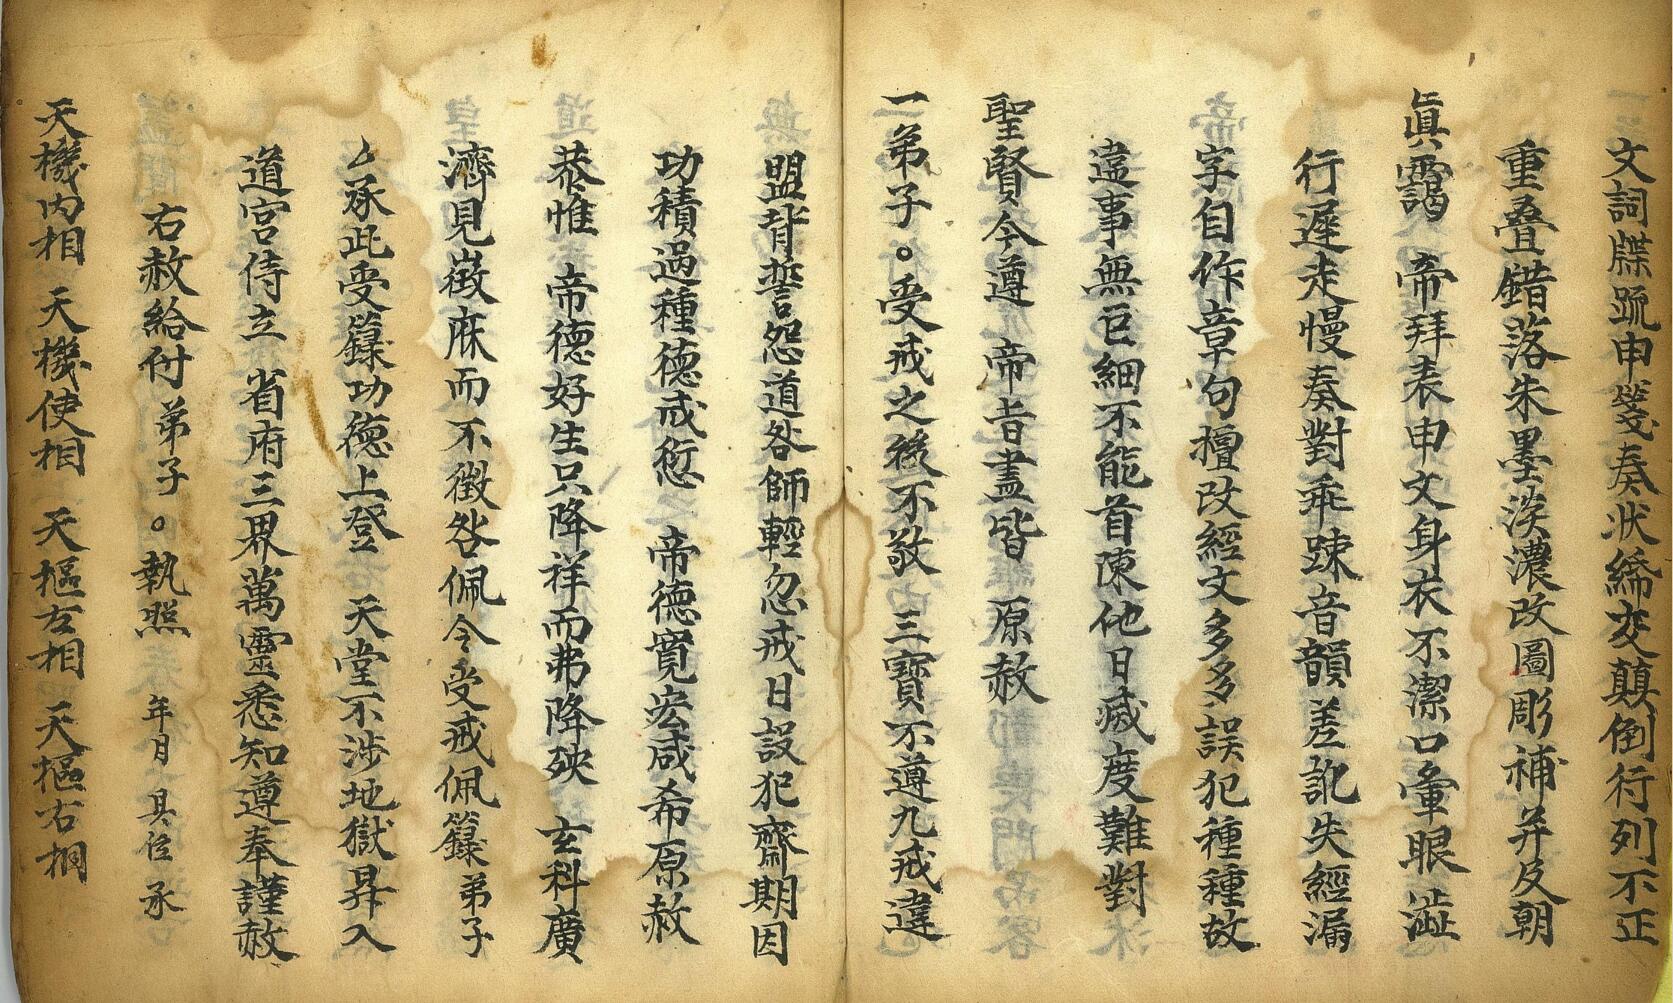 文詞牒疏申箋奏狀締交顛倒行列不正
重叠錯落朱墨淡濃改圖彫補并及朝
眞靄 帝拜表申文身衣不潔口暈眼澁
行遲走慢奏對乖踈音韻差訛失經漏
字自作章句擅改經文多多誤犯種種故
違事無巨細不能首陳他日滅度難對
聖賢今遵 帝旨盡皆 原赦
一弟子。受戒之後不敬 三寶不遵九戒違
盟背誓怨道咎師輕忽戒日設犯齋期因
功積過種德戒愆 帝德寬宏咸希原赦
恭惟 帝德好生只降祥而弗降殃 玄科廣
濟見徵庥而不徵咎佩令受戒佩籙弟子
厶承此受籙功德上登 天堂不涉地獄昇入
道宮侍立 省府三界萬靈悉知遵奉謹赦
右赦給付 弟子。執照 年月 具位 承
天機內相 天機使相 天樞左相 天樞右相